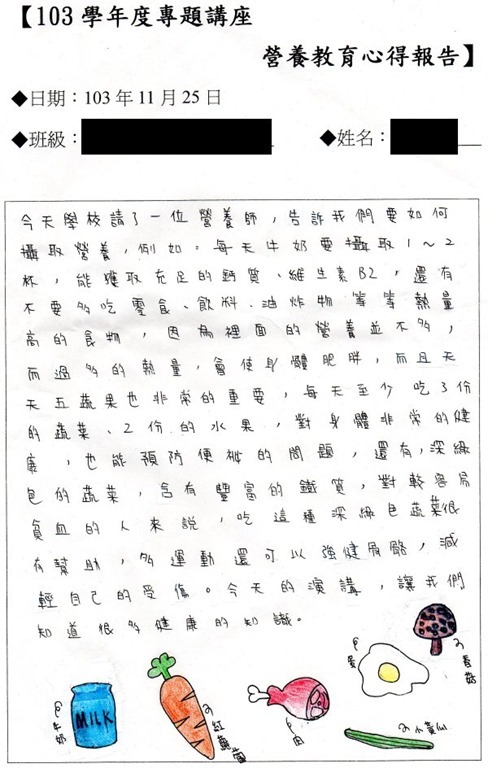 【103學年度專題講座
營養教育心得報告】
◆日期：103年11月25日
◆班級：
◆姓名：
今天學校請了一位營養師，告訴我們要如何
攝取營養，例如：每天牛奶要攝取1～2
杯，能獲取充足的鈣質、維生素B2，還有
不要多吃零食、飲料、油炸物等等熱量
高的食物，因為裡面的營養並不多，
而過多的熱量，會使身體肥胖，而且天
天五蔬果也非常的重要，每天至少吃3份
的蔬菜、2份的水果，對身體非常的健
康，也能預防便祕的問題，還有，深綠
色的蔬菜，含有豐富的鐵質，對較容易
貧血的人來說，吃這種深綠色蔬菜很
有幫助，多運動還可以強健骨骼，減
輕自己的受傷。今天的演講，讓我們
知道很多健康的知識。
香菇
蛋
MILK
牛奶
紅蘿蔔
肉
小黃瓜